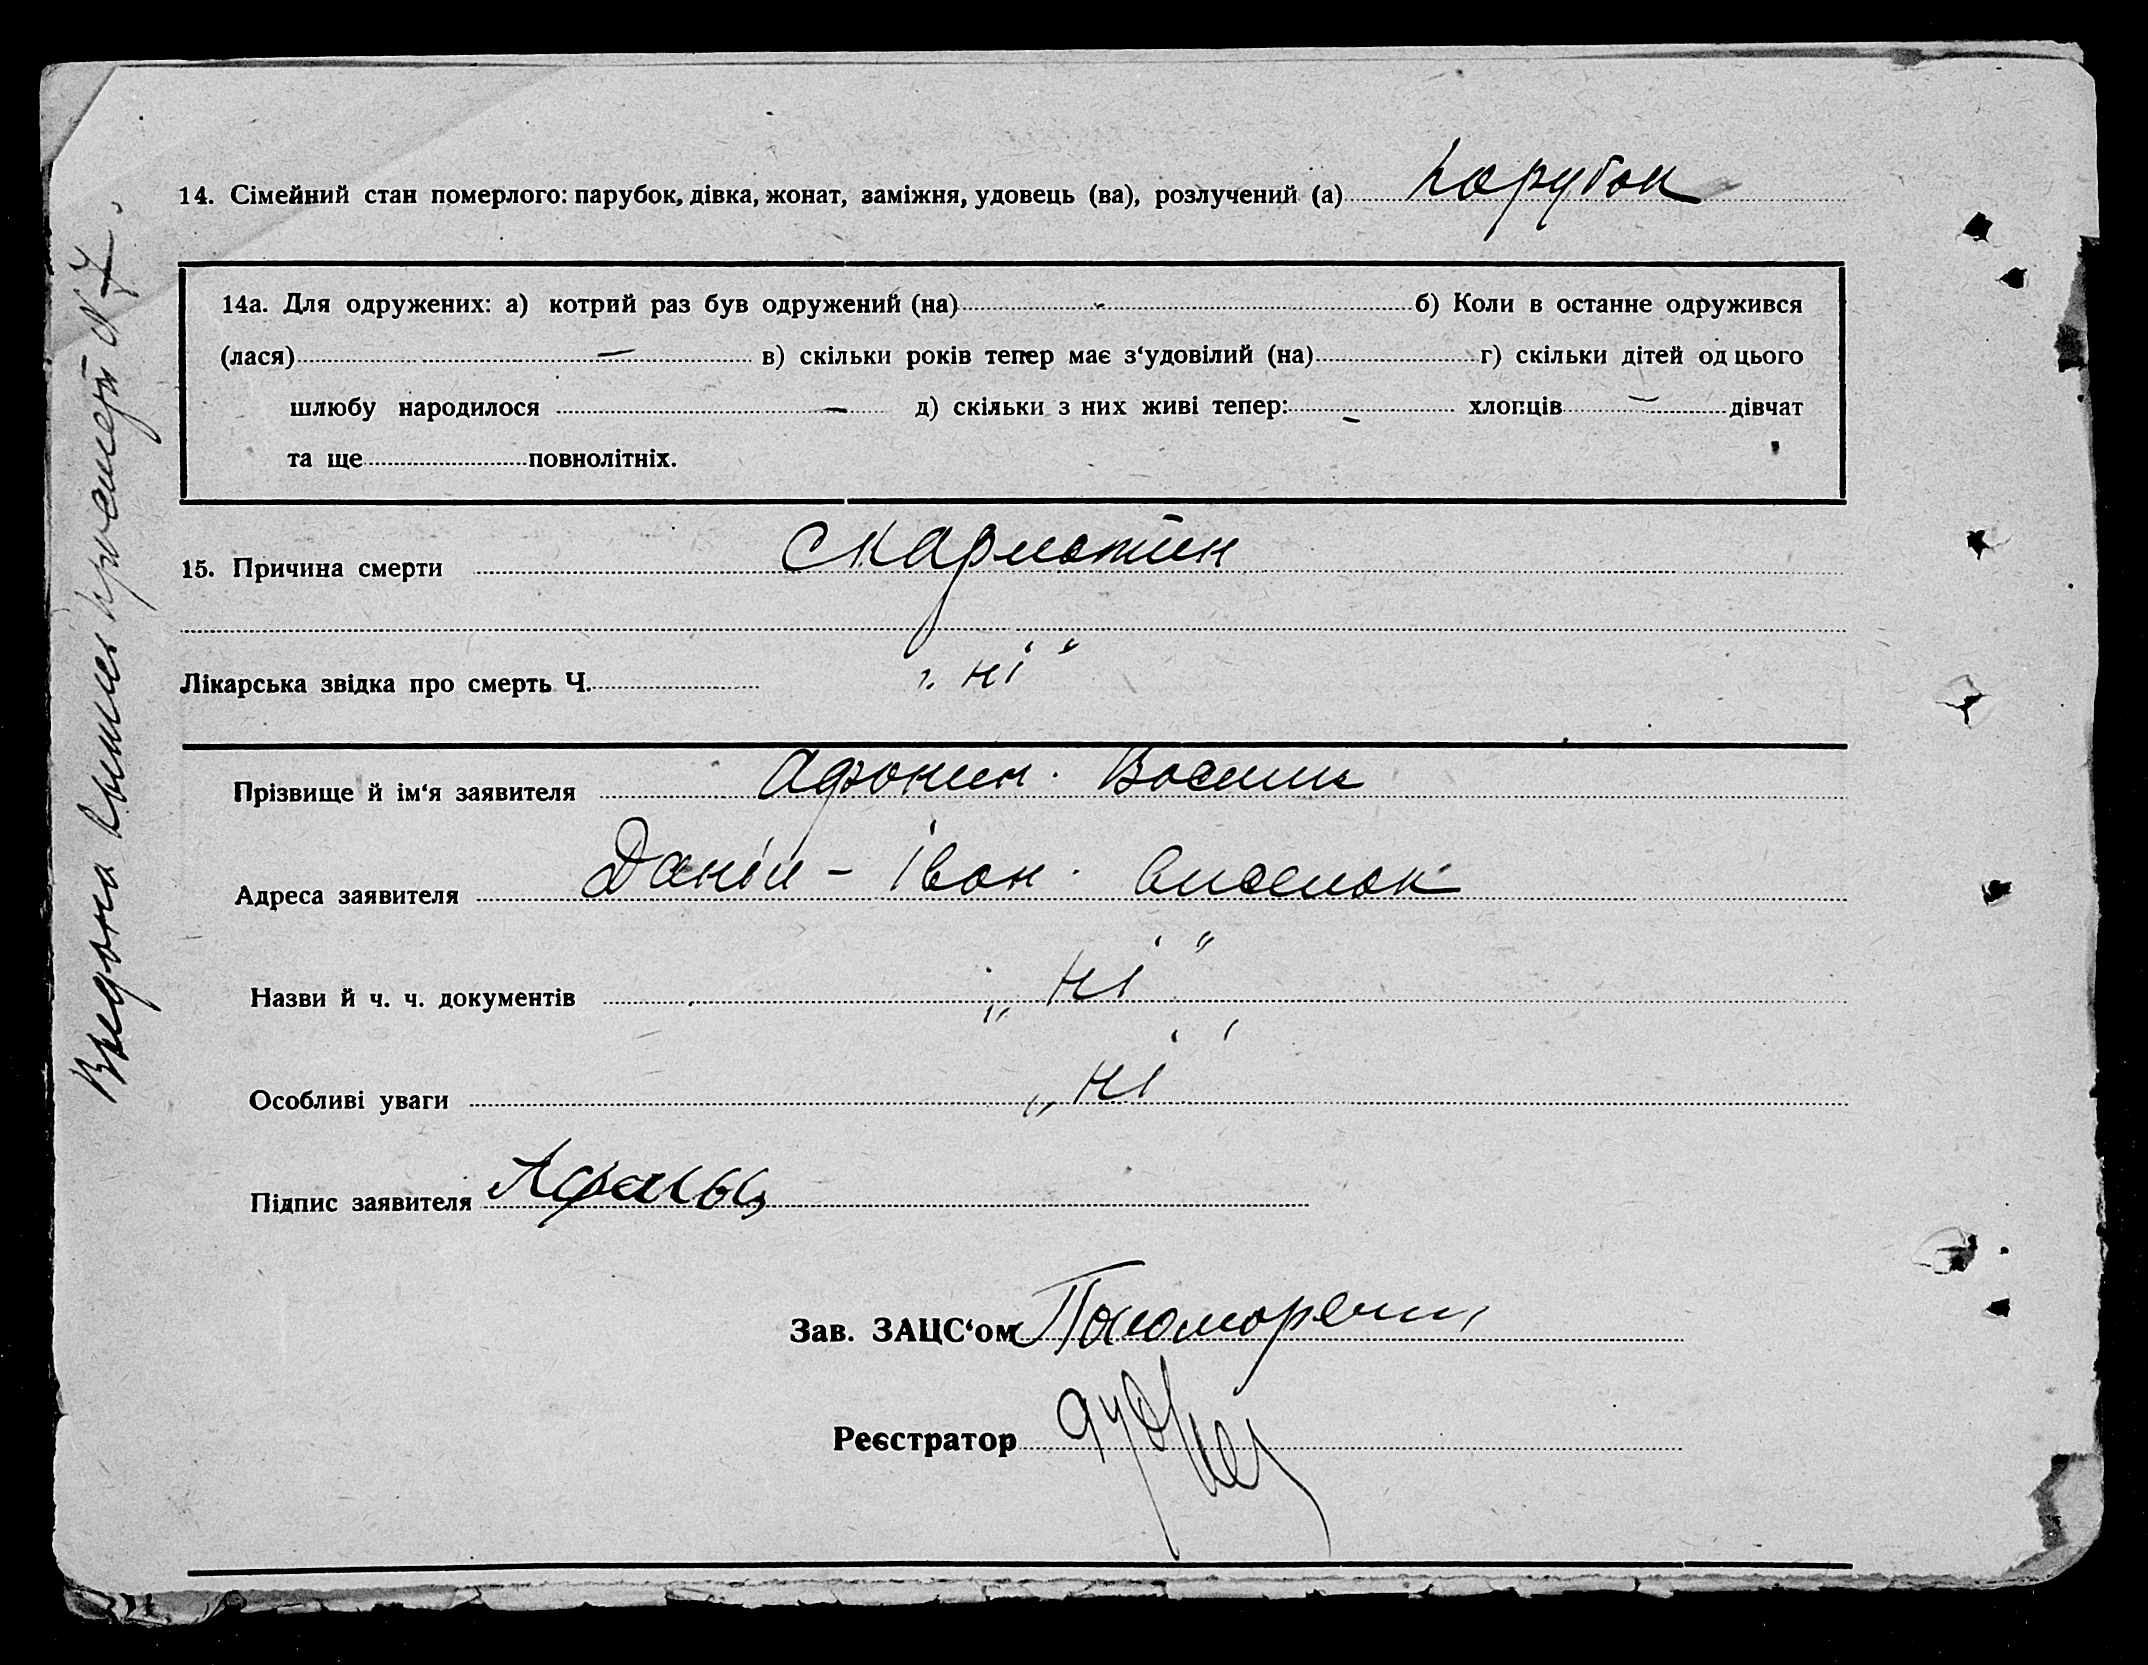 14. Сімейний стан померлого: парубок, дівка, жонат, заміжня, удовець (ва), розлучений (а) парубок
14а. Для одружених: а) котрий раз був одружений (на) - б) Коли в останне одружився
(лася) — в) скільки років тепер має з‘удовілий (на) г) скільки дітей од цього
шлюбу народилося — д) скільки з них живі тепер: - хлопців — дівчат
та ще повнолітніх.
15. Причина смерти скарлотин
Лікарська звідка про смерть Ч. „ні“
Прізвище й ім‘я заявителя Афонин. Восили
Адреса заявителя Даніл - Івон. виселок
Назви й ч. ч. документів „ні“
Особливі уваги „ні“
Підпис заявителя
Зав. ЗАЦС‘ом Пономоренк
Реєстратор
Видона N 7.